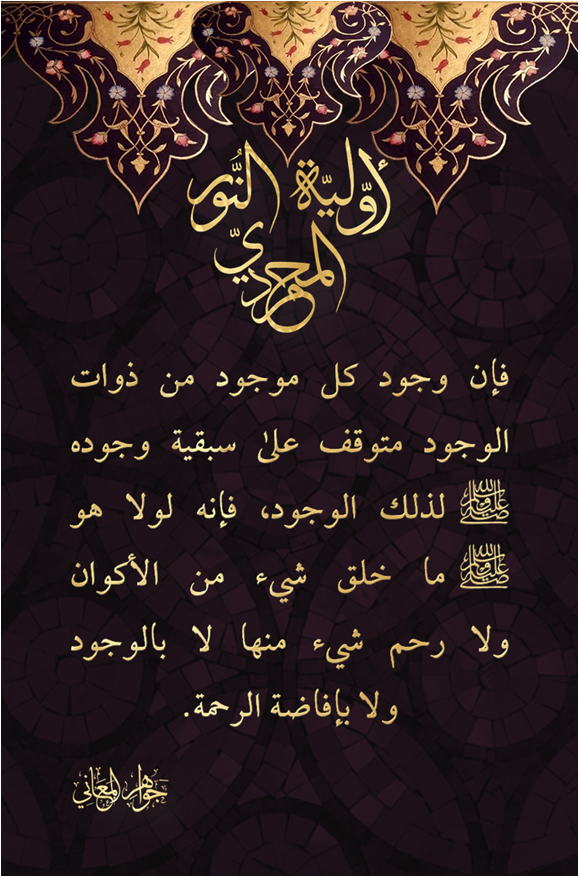 أوّليّة النُّور
المحمديّ
فإن وجود كل موجود من ذوات
الوجود متوقف على سبقية وجوده
ﷺ لذلك الوجود، فإنه لولا هو
ﷺ ما خلق شيء من الأكوان
ولا رحم شيء منها لا بالوجود
ولا بإفاضة الرحمة.
جَواهِر المَعَاني